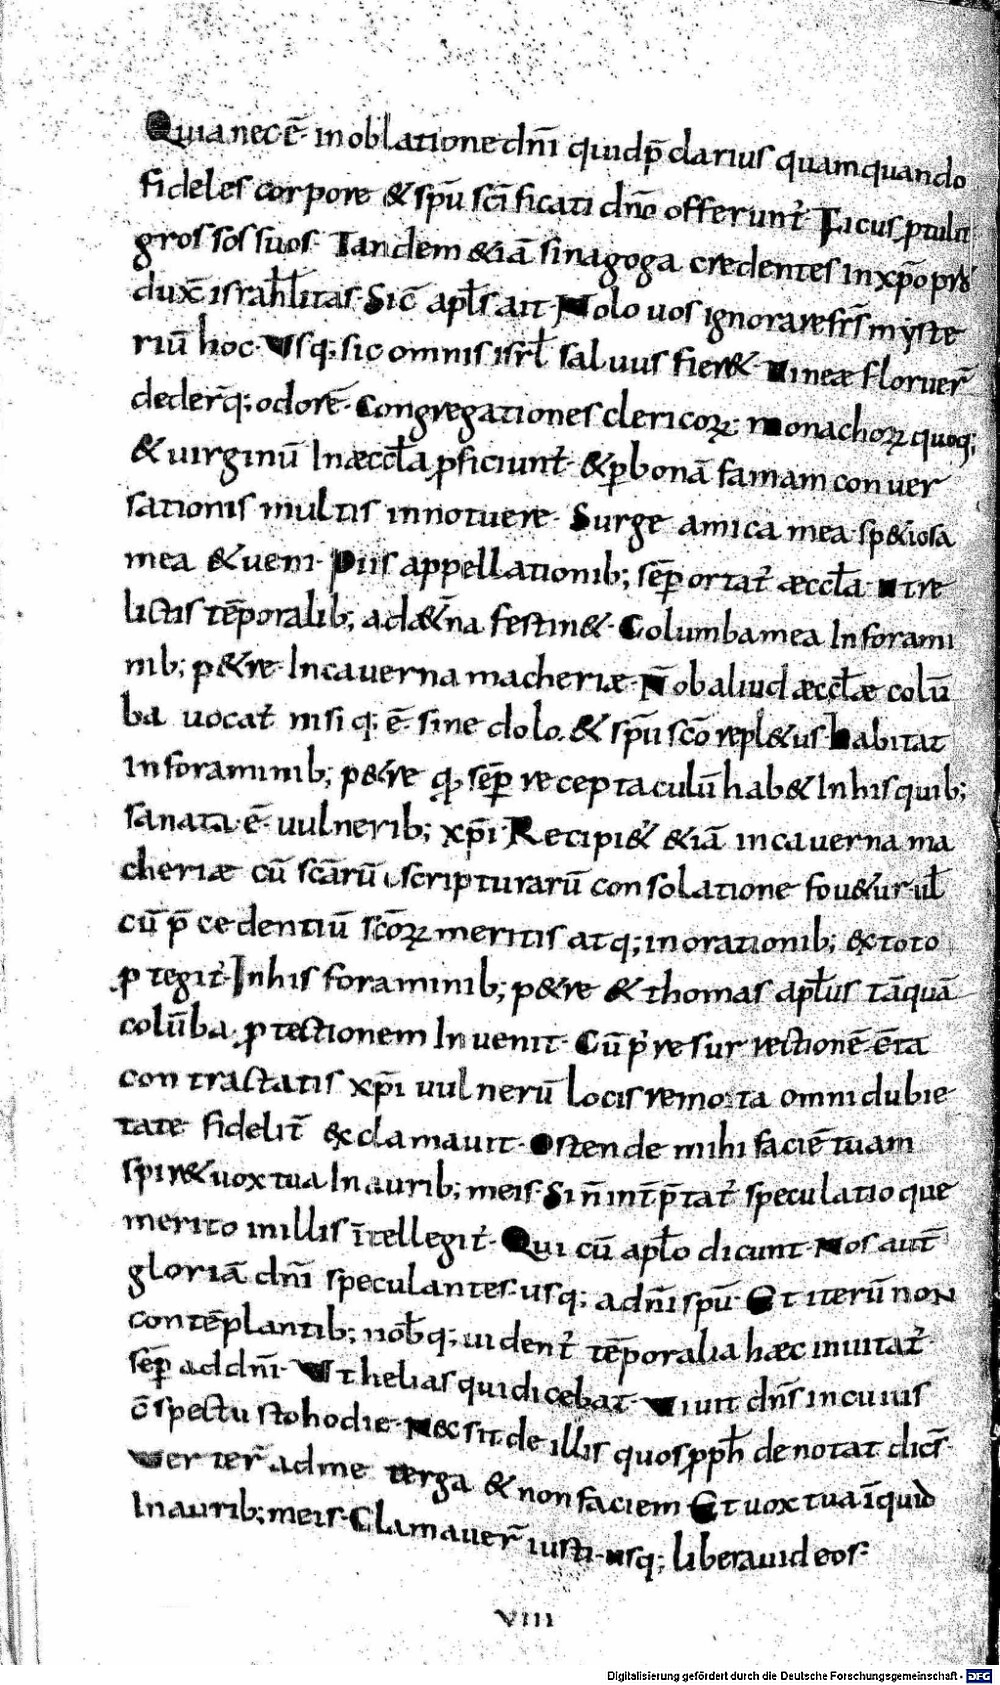 Quia nec ē in oblatione dn̄i quid p̄clarius quam quando
fideles corpore & sp̄u sc̄ificati dn̄o offerunt̉. Ficus ꝓtulit
grossos suos. Tandem &iā sinagoga credentes in xp̄o
dux̄ israhl̄itas. Sic̄ apl̄s ait. Nolo uos ignorare fr̄s myste
riū hoc. Vsq; sic omnis isrl̄ saluus fier&. Vineæ floruer̄
deder̄q; odorē. Congregationes clericoꝝ monachoꝝ quoq;
& uirginū In æccl̄a ꝓficiunt̉. & ꝑ bonā famam conuer
sationis multis innotuere. Surge amica mea sp&iosa
mea & ueni. Piis appellationib; sēꝑ ortat̉ æccl̄a. ut re
lictis tēporalib; ad &̄na festin&. Columba mea In forami
nib; p&re. In cauerna macheriæ. N̄ ob aliud æccl̄æ colū
ba uocat̉ nisi q; ē sine dolo. & sp̄u sc̄o repl&us. habitat
In foraminib; p&re ꝙ sēꝑ receptaculū hab& In his quib;
sanata ē uulnerib; xp̄i. Recipi&̉ &iā in cauerna ma
cheriæ cū scārū scripturarū consolatione fou&ur. ul̄
cū p̄cedentiū sc̄oꝝ meritis atq; in orationib; ex toto
ꝓtegit̉. In his foraminib; p&re & thomas apl̄us tāquā
colūba ꝓtectionem Inuenit. Cū p̉ resurrectionē ē ita
contractatis xp̄i uulnerū locis remota omni dubie
tate fidelit̄ exclamauit. Ostende mihi faciē tuam
spir& uox tua In aurib; meis. Si n̄ int̄p̄tat̉ speculatio que
merito in illis ītellegit̉. Qui cū apl̄o dicunt. Nos aut̄
gloriā dn̄i speculantes. usq; a dn̄i sp̄u. Et iterū non
contēplantib; nob̄ q; uident̉ tēporalia hæc inuitat̉
sēꝑ ad dn̄i. Vt helias qui dicebat. Viuit dn̄s in cuius
c̄spectu sto hodie. Nec sit de illis quos ꝓph̄ denotat dicr̄
Verter̄ ad me terga & non faciem. Et uox tua īquid
In aurib; meis. Clamauer̄ iusti. usq; liberauid eos.
VIII
Digitalisierung gefördert durch die Deutsche Forschungsgemeinschaft - DFG